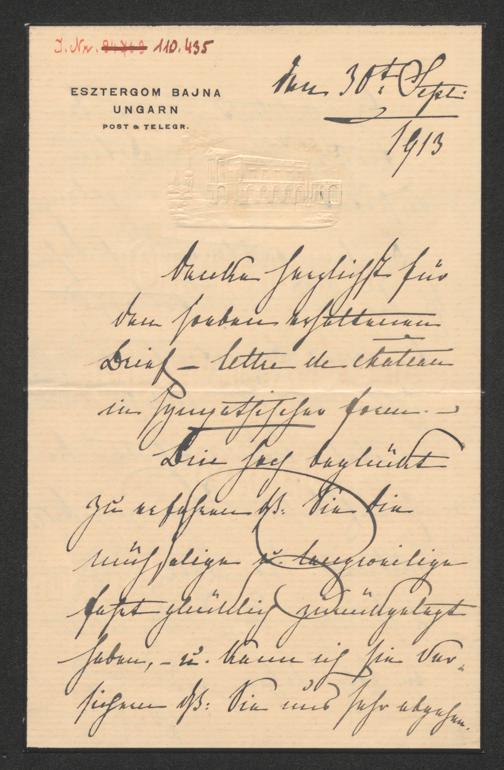 I. Nr. 110.435
ESZTERGOM BAJNA
UNGARN
POST & TELEGR.
den 30t Sept:
1913
Danke herzlichst für
den soeben erhaltenen
Brief – lettre de château
in sympathischer Form. –
Bin hoch beglückt
zu erfahren dß: Sie die
mühselige u. langweilige
Fahrt glücklich zurückgelegt
haben, – u. kann ich Sie ver-
sichern dß: Sie uns sehr abgehen.